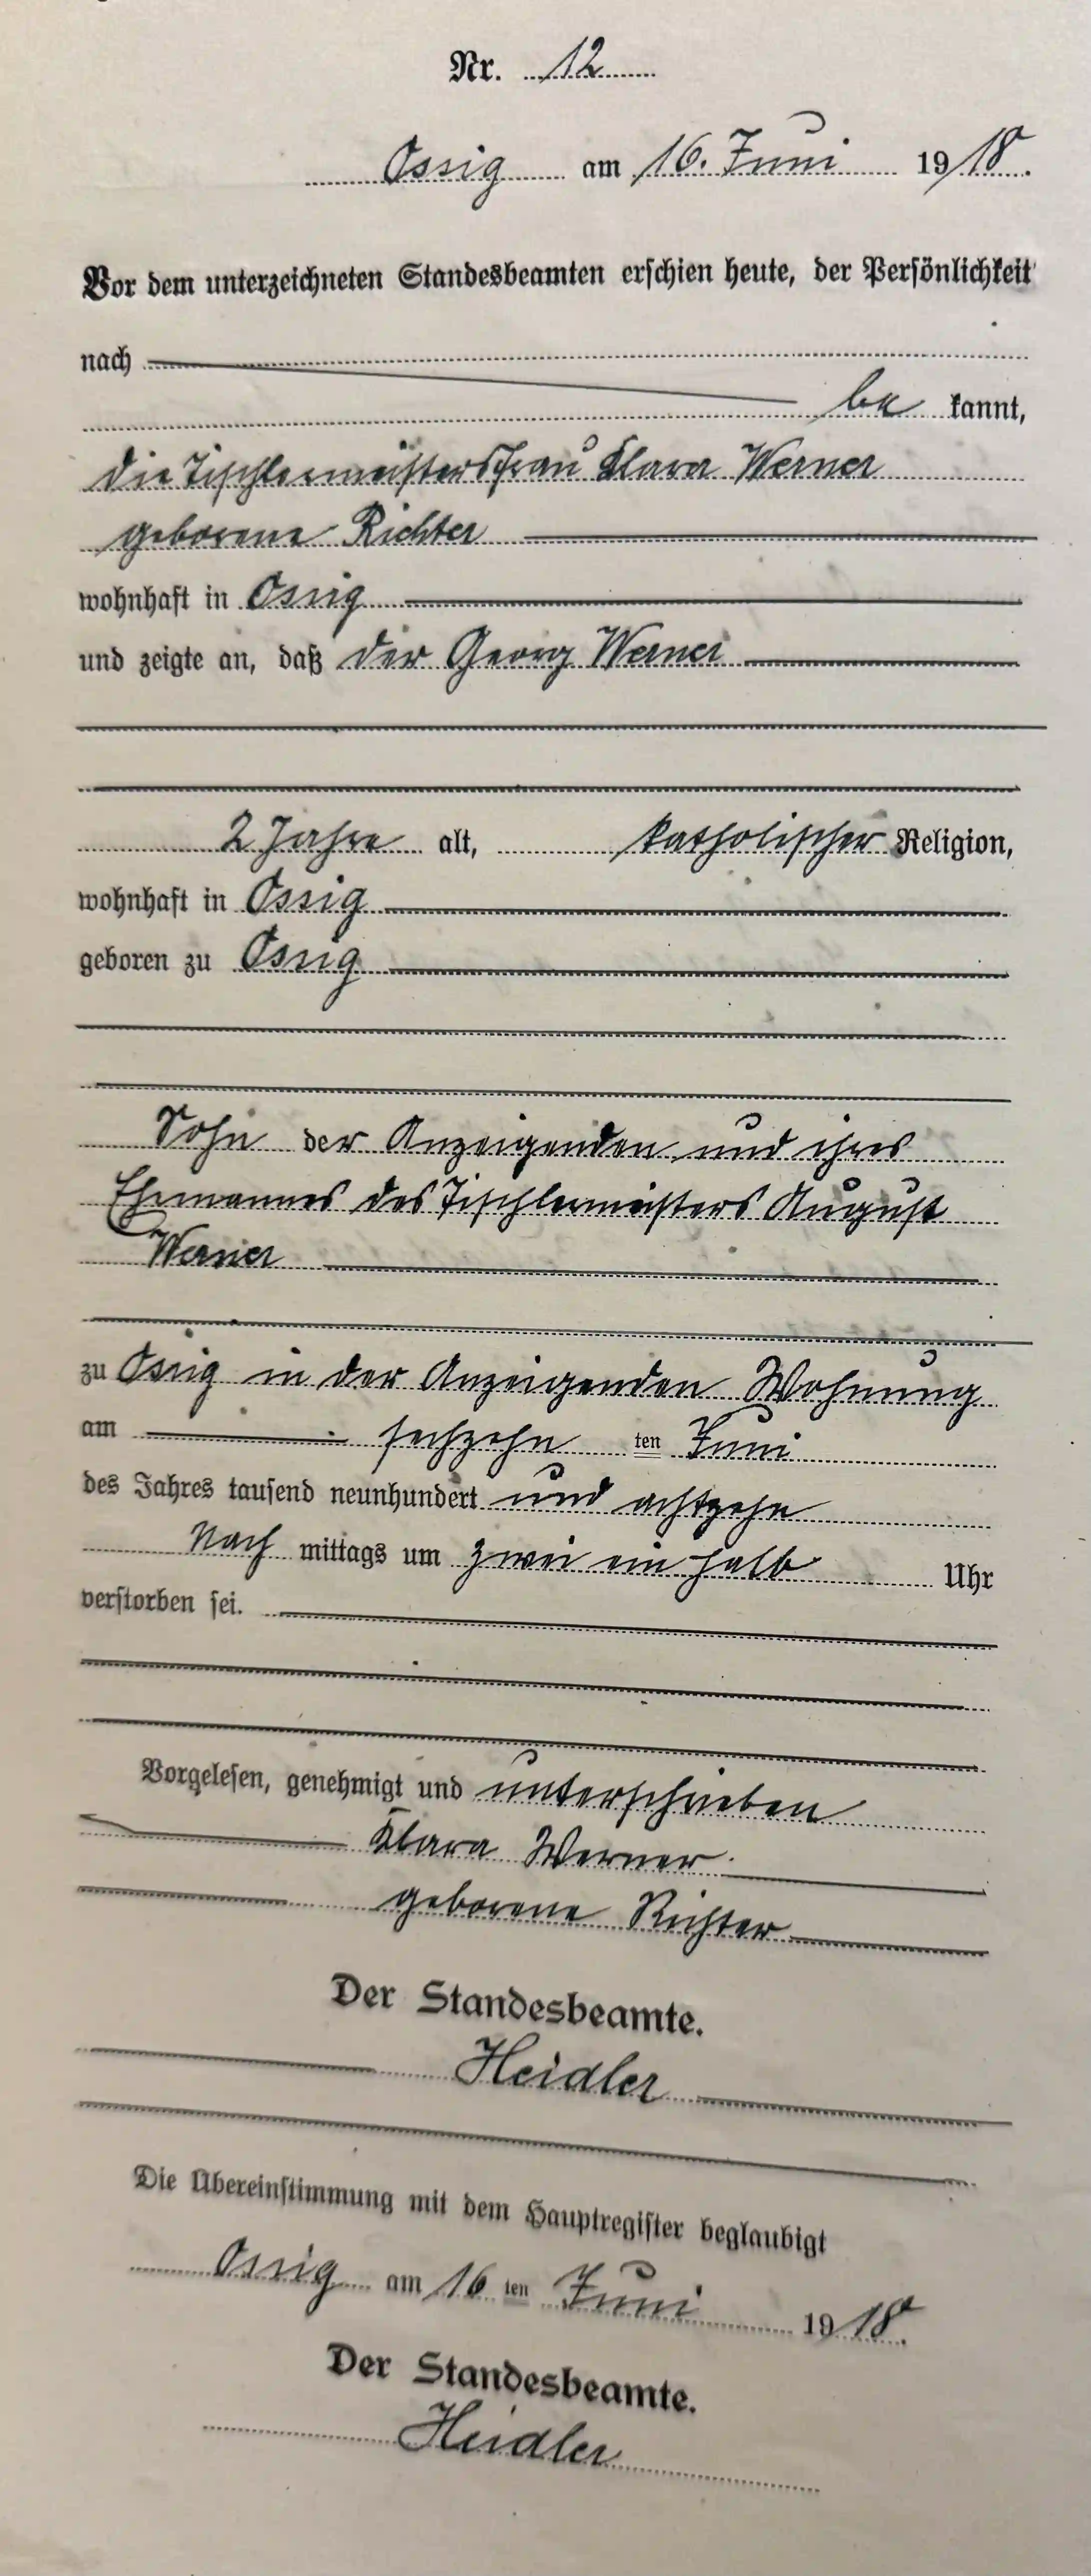 Nr. 12
Ossig am 16. Juni 1918.
Vor dem unterzeichneten Standesbeamten erschien heute, der Persönlichkeit
nach
be kannt,
die Tischlermeistersfrau Klara Werner
geborene Richter
wohnhaft in Ossig
und zeigte an, daß der Georg Werner
2 Jahre alt, katholischer Religion,
wohnhaft in Ossig
geboren zu Ossig
Sohn der Anzeigenden und ihres
Ehemannes des Tischlermeisters August
Werner
zu Ossig in der Anzeigenden Wohnung
am sechzehn ten Juni
des Jahres tausend neunhundert und achtzehn
Nach mittags um zwei ein halb Uhr
verstorben sei.
Vorgelesen, genehmigt und unterschrieben
Klara Werner
geborene Richter
Der Standesbeamte.
Heidler
Die Übereinstimmung mit dem Hauptregister beglaubigt
Ossig am 16 ten Juni 1918.
Der Standesbeamte.
Heidler